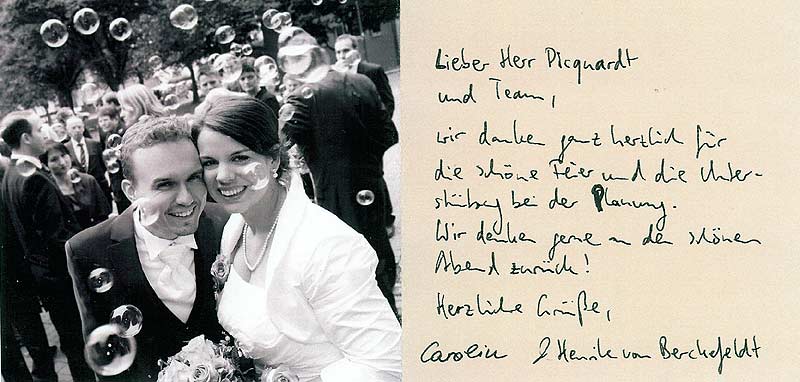 Lieber Herr Picquardt
und Team,
wir danken ganz herzlich für
die schöne Feier und die Unter-
stützung bei der Planung.
Wir denken gerne an den schönen
Abend zurück!
Herzliche Grüße,
Carolin & Henrik von Berckefeldt